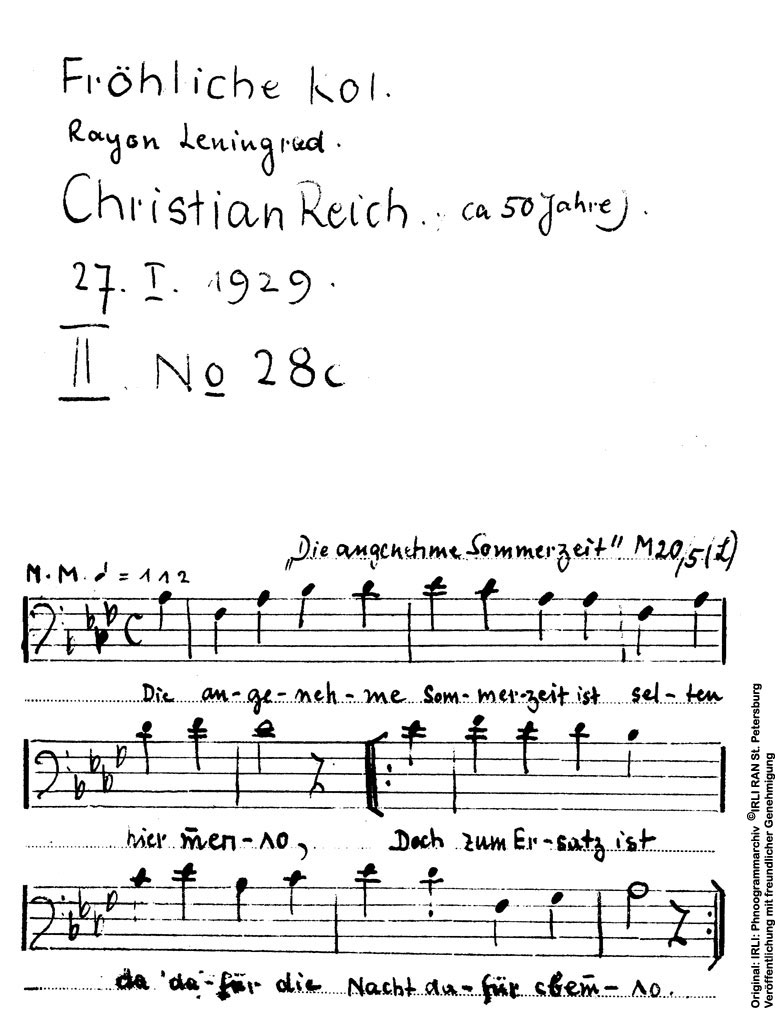 Fröhliche Kol.
Rayon Leningrad.
Christian Reich. ca 50 Jahre).
27. I. 1929.
II. No 28c
„Die angenehme Sommerzeit" M20,5(L)
M.M. ♩ = 112
Die an-ge-neh-me Som-mer-zeit ist sel-ten
hier m̅en-10, Doch zum Er-satz ist
da 'da'-für die Nacht da-für eben̅-10.
Original: IRLI: Phnoogrammarchiv ©IRLI RAN St. Petersburg
Veröffentlichung mit freundlicher Genehmigung